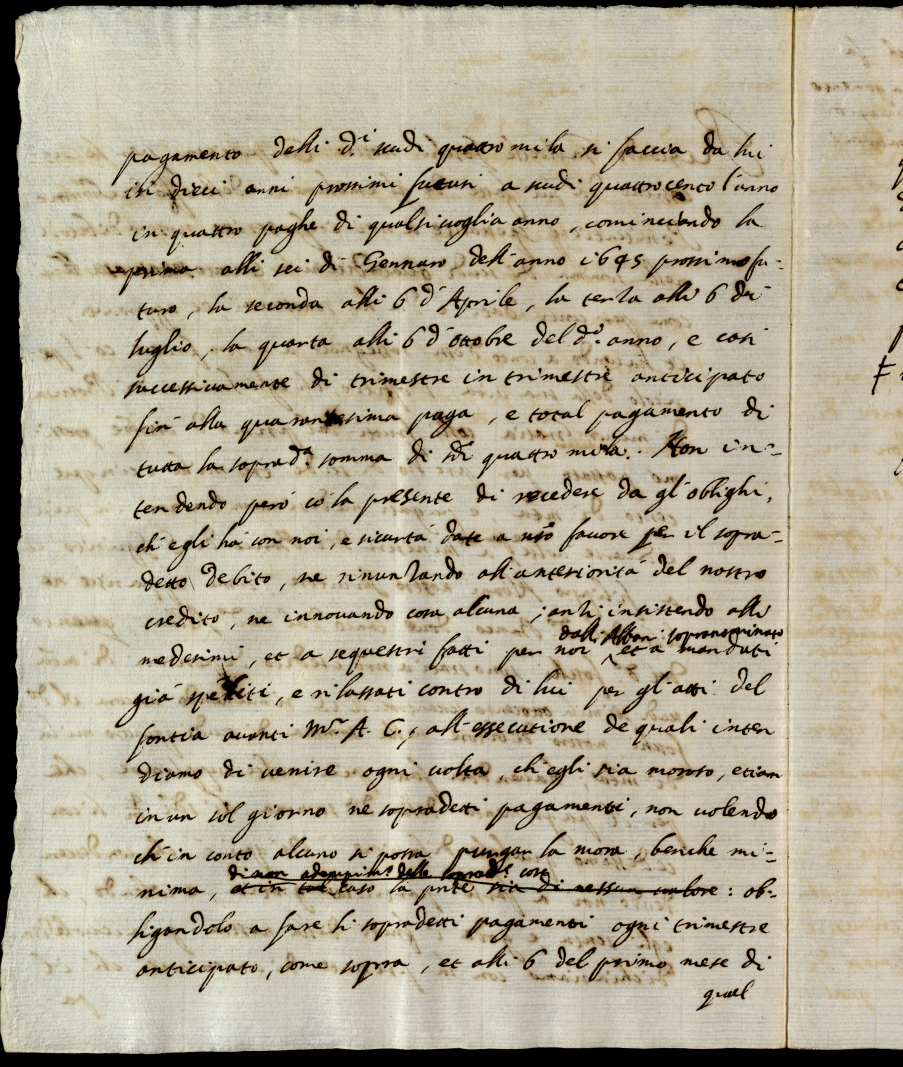 pagamento delli d.i scudi quattro mila si faccia da lui
in dieci anni prossimi futuri a scudi quattrocento l'anno
in quattro paghe di qualsivoglia anno, cominciando la
prima alli sei di Gennaro dell'anno 1645 prossimo fu-
turo, la seconda alli 6 d'Aprile, la terza alli 6 di
luglio, la quarta alli 6 d'ottobre del d.o anno, e così
successivamente di trimestre in trimestre anticipato
fin' alla quarantesima paga, e total pagamento di
tutta la soprad.a somma di sdi quattro mila. Non in-
tendendo però cō la presente di recedere da gl'oblighi,
ch'egli hà con noi, e sicurtà date a nr̄o favore per il sopra-
detto debito, ne rinunzando all'anteriorità del nostro
credito, ne innovando cosa alcuna, anzi insistendo alli
dalli sopranominato
medesimi, et a sequestri fatti per noi et a mandati
già spediti, e rilassati contro di lui per gli atti del
fontia avanti M.r A. C., all'essecutione de quali inten
diamo di venire ogni volta, ch'egli sia moroso, etian
in un sol giorno ne sopradetti pagamenti, non volendo
ch'in conto alcuno si possa purgar la mora, benche mi-
di non delle soprad.e cose
nima, et in tal caso la pn̄te sia di nessun valore: ob-
ligandolo a fare li sopradetti pagamenti ogni trimestre
anticipato, come sopra, et alli 6 del primo mese di
qual